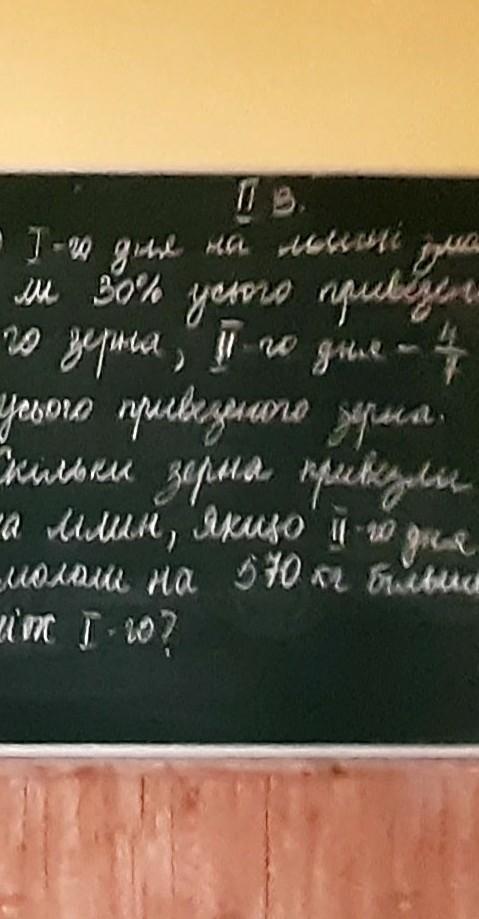 II В.
) I-го дня на млині змо
ли 30% усього привезен
го зерна, II-го дня - 4/7
усього привезеного зерна.
Скільки зерна привезли
а млин, якщо II-го дня
мололи на 570 кг більше
ніж I-го?